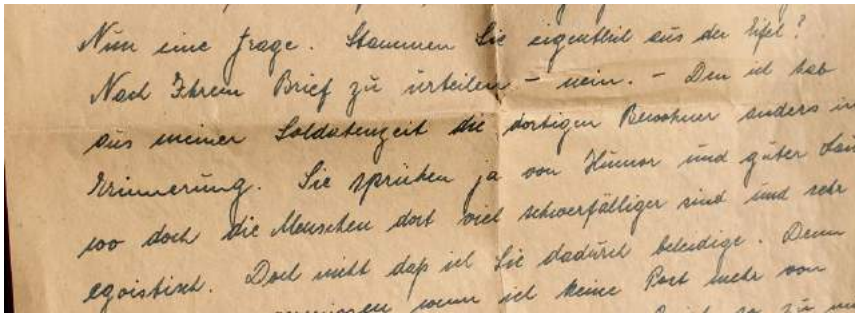 Nun eine Frage. Stammen Sie eigentlich aus der Eifel?
Nach Ihrem Brief zu urteilen – nein. – Den ich hab
aus meiner Soldatenzeit die dortigen Bewohner anders in
Erinnerung. Sie sprühen ja von Humor und guter
wo doch die Menschen dort viel schwerfälliger sind und sehr
egoistisch. Doch nicht daß ich Sie dadurch beleidige. Denn
wenn ich keine Post mehr von